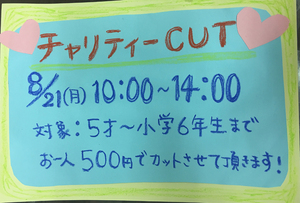 チャリティーCUT
8/21(月) 10:00～14:00
対象：5才～小学6年生まで
お一人500円でカットさせて頂きます!